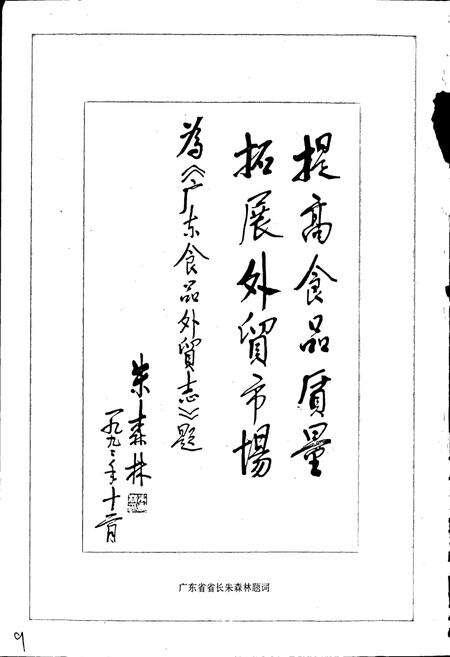 提高食品质量
拓展外貿市場
為《广东食品外貿志》題
朱森林
一九九二年十二月
广东省省长朱森林题词
9